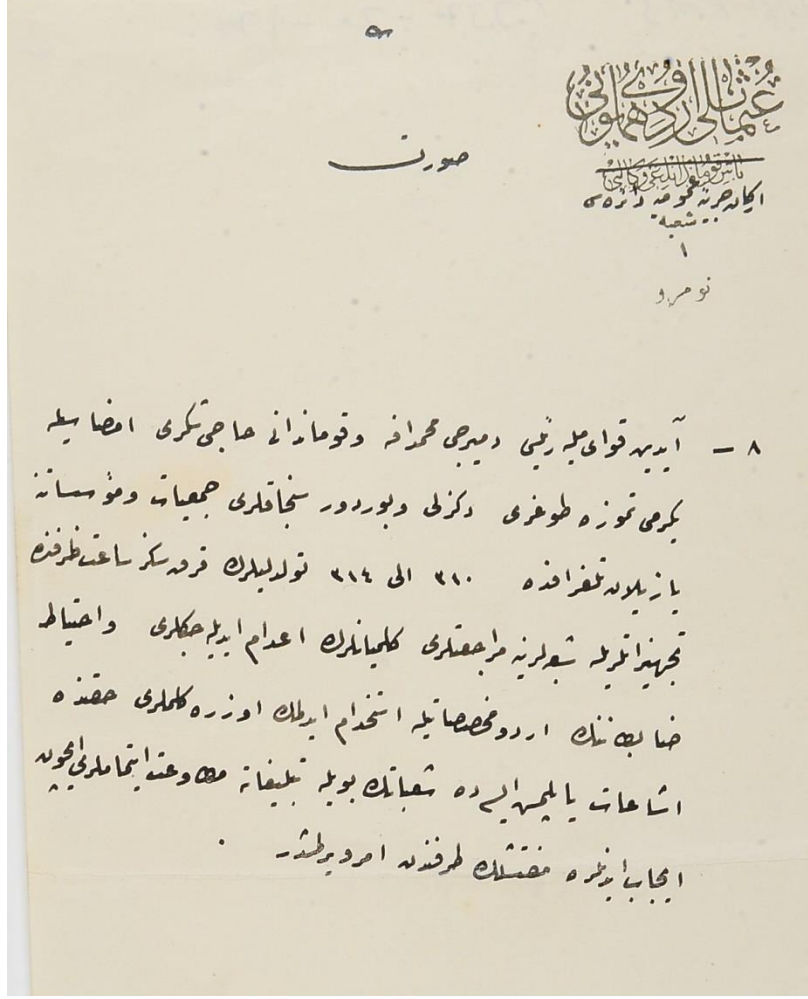 صورت
عثمانلی اردوی همایونی
باش قوماندانلغی وكالتی
اركان حربیهٔ عمومیه دائره‌سی
شعبه
١
نومرو
٨ – آیدین قوای ملیه رئیسی دمیرجی محمد افه وقوماندانی حاجی شكری امضاسیله
یكرمی تموزه طوغری دكزلی وبوردور سنجاقلری جمعیات ومؤسساتنه
یازیلان تلغرافده ٣١٠ الی ٣١٤ تولدلیلرك قرق سكز ساعت ظرفنده
تجهیزاتلریله شعبه‌لرینه مراجعتلری كلمیانلرك اعدام ایدیله‌جكلری واحتیاط
ضابطاننك اردو مخصصاتیله استخدام ایدلمك اوزره كلملری حقنده
اشاعات یاپلمش ایسه‌ده شعباتك بویله تبلیغاته مطاوعت ایتماملری ایچون
ایجاب ایدنلره مفتشلك طرفندن امر ویرلمشدر .